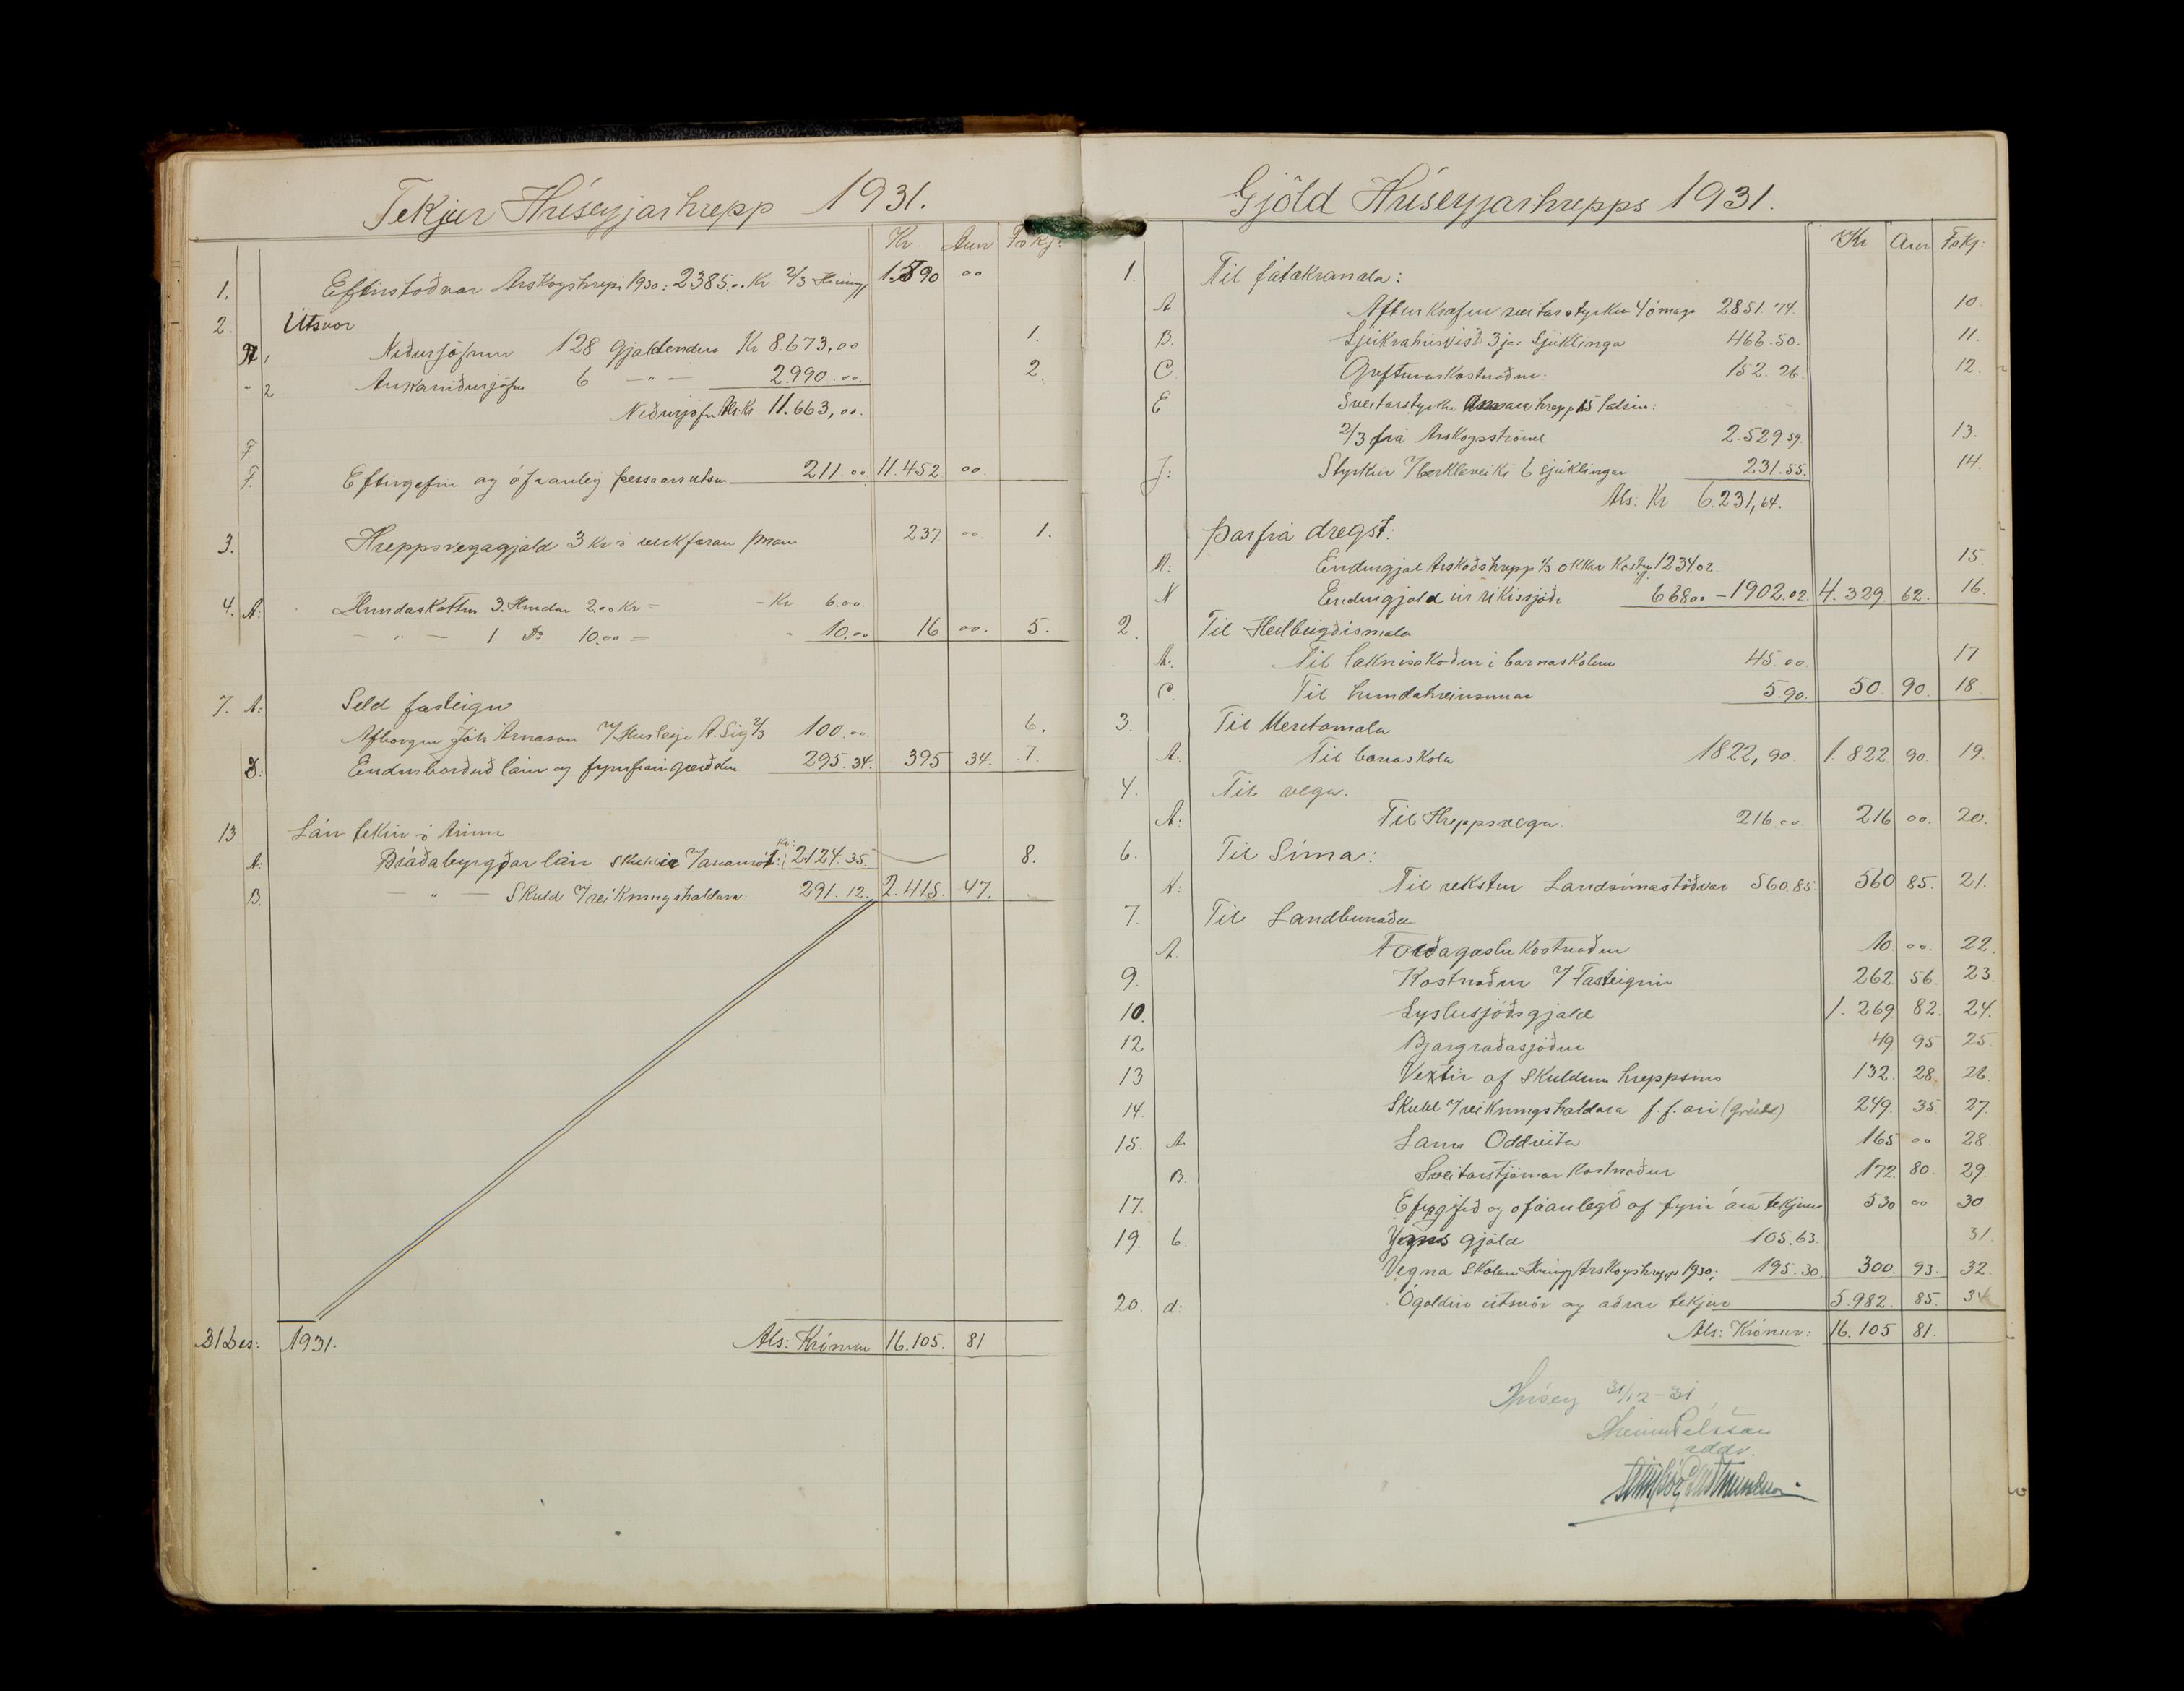 Tekjur Hríseyjarhrepp 1931.
Kr. Aur Fskj:
1. Eftirstöðvar Arskogshrepi 1930: 2385.00 Kr 2/3 1.590 00
2. Utsvor
A 1 Niðurjöfnun 128 gjaldendur Kr 8.673,00 1.
- 2 Aukaniðurjöfn 6 -"- 2.990.00. 2.
Niðurjöfn Als. Kr 11.663,00.
F.
F. Eftirgefin og ófaanleg þessa ars utsv 211.00 11.452 00.
3. Hreppsvegagjald 3 Kr á verkfæran mann 237 00. 1.
4. A. Hundaskattur 3. Hundar 2.00 Kr = - Kr 6.00
- " - 1 Do 10.00 = 10.00 16 00. 5.
7. A: Seld fasteign
Afborgun Jóh Arnason V/Husleigu A. Sig 2/3 100.00 6.
D: Endurborðuð lán og fyrirframgreiddur 295.34. 395 34. 7.
13 Lán tekin á Árinu
Kr:
A. Bráðabyrgðar lán skuldir V/aramót: 2124.35. 8.
B. - " - Skuld V/reikningshaldara 291.12. 2.415. 47.
31 Des: 1931. Als: Krónur 16.105. 81
Gjöld Hríseyjarhrepps 1931.
Kr Aur Fskj:
1. Til fátækramala:
A Afturkræfur sveitarstyrkur 4 ómaga 2851.74. 10.
B. Sjúkrahúsvist 3ja: Sjúklinga 466.50. 11.
C. Greftrunarkostnaður: 152.26. 12.
E Sveitarstyrkur hrepp 15 talsins:
2/3 frá Arskogsströnd 2.529.59. 13.
J: Styrkur V/berklaveiki 6 sjúklingar 231.55. 14.
Als. Kr 6.231,64.
Þarfrá dregst:
Endurgjal Arskoðshrepp 1/3 okkar Kostn 1234.02. 15.
N Endurgjald úr rikissjóði 668.00 - 1902.02. 4.329. 62. 16.
2. Til Heilbrigðismala
A. Til læknisskoðun i barnaskolum 45.00. 17
C. Til hundahreinsunar 5.90. 50. 90. 18.
3. Til Mentamala
A. Til barnaskola 1822,90. 1.822 90. 19.
4. Til vega.
A: Til Hreppsvega. 216.00. 216 00. 20.
6. Til Síma:
A: Til rekstur Landsímastöðvar 560.85. 560 85. 21.
7. Til Landbunaða
A. Forðagæslu Kostnaður 10 00. 22.
9. Kostnaður V/Fasteignir 262. 56. 23.
10. Syslusjóðsgjald 1.269. 82. 24.
12 Bjargraðasjóður 49. 95 25.
13 Vextir af Skuldum hreppsins 132. 28. 26.
14. Skuld V/reikningshaldara f. f. ári (greidd) 249. 35 27.
15. A. Laun Oddvita 165 00 28.
B. Sveitarstjórnar Kostnaður 172. 80. 29.
17. og ofáanlegð af fyrri ára tekjum 530 00 30.
19. b. Yms gjöld 105.63. 31.
Vegna Skólans Arskogshrepps 1930: 195.30. 300. 93. 32.
20. d: Ógoldin útsvör og aðrar tekjur 5.982. 85. 34
Als: Krónur: 16.105 81.
Hrísey 31/12-31
oddv.